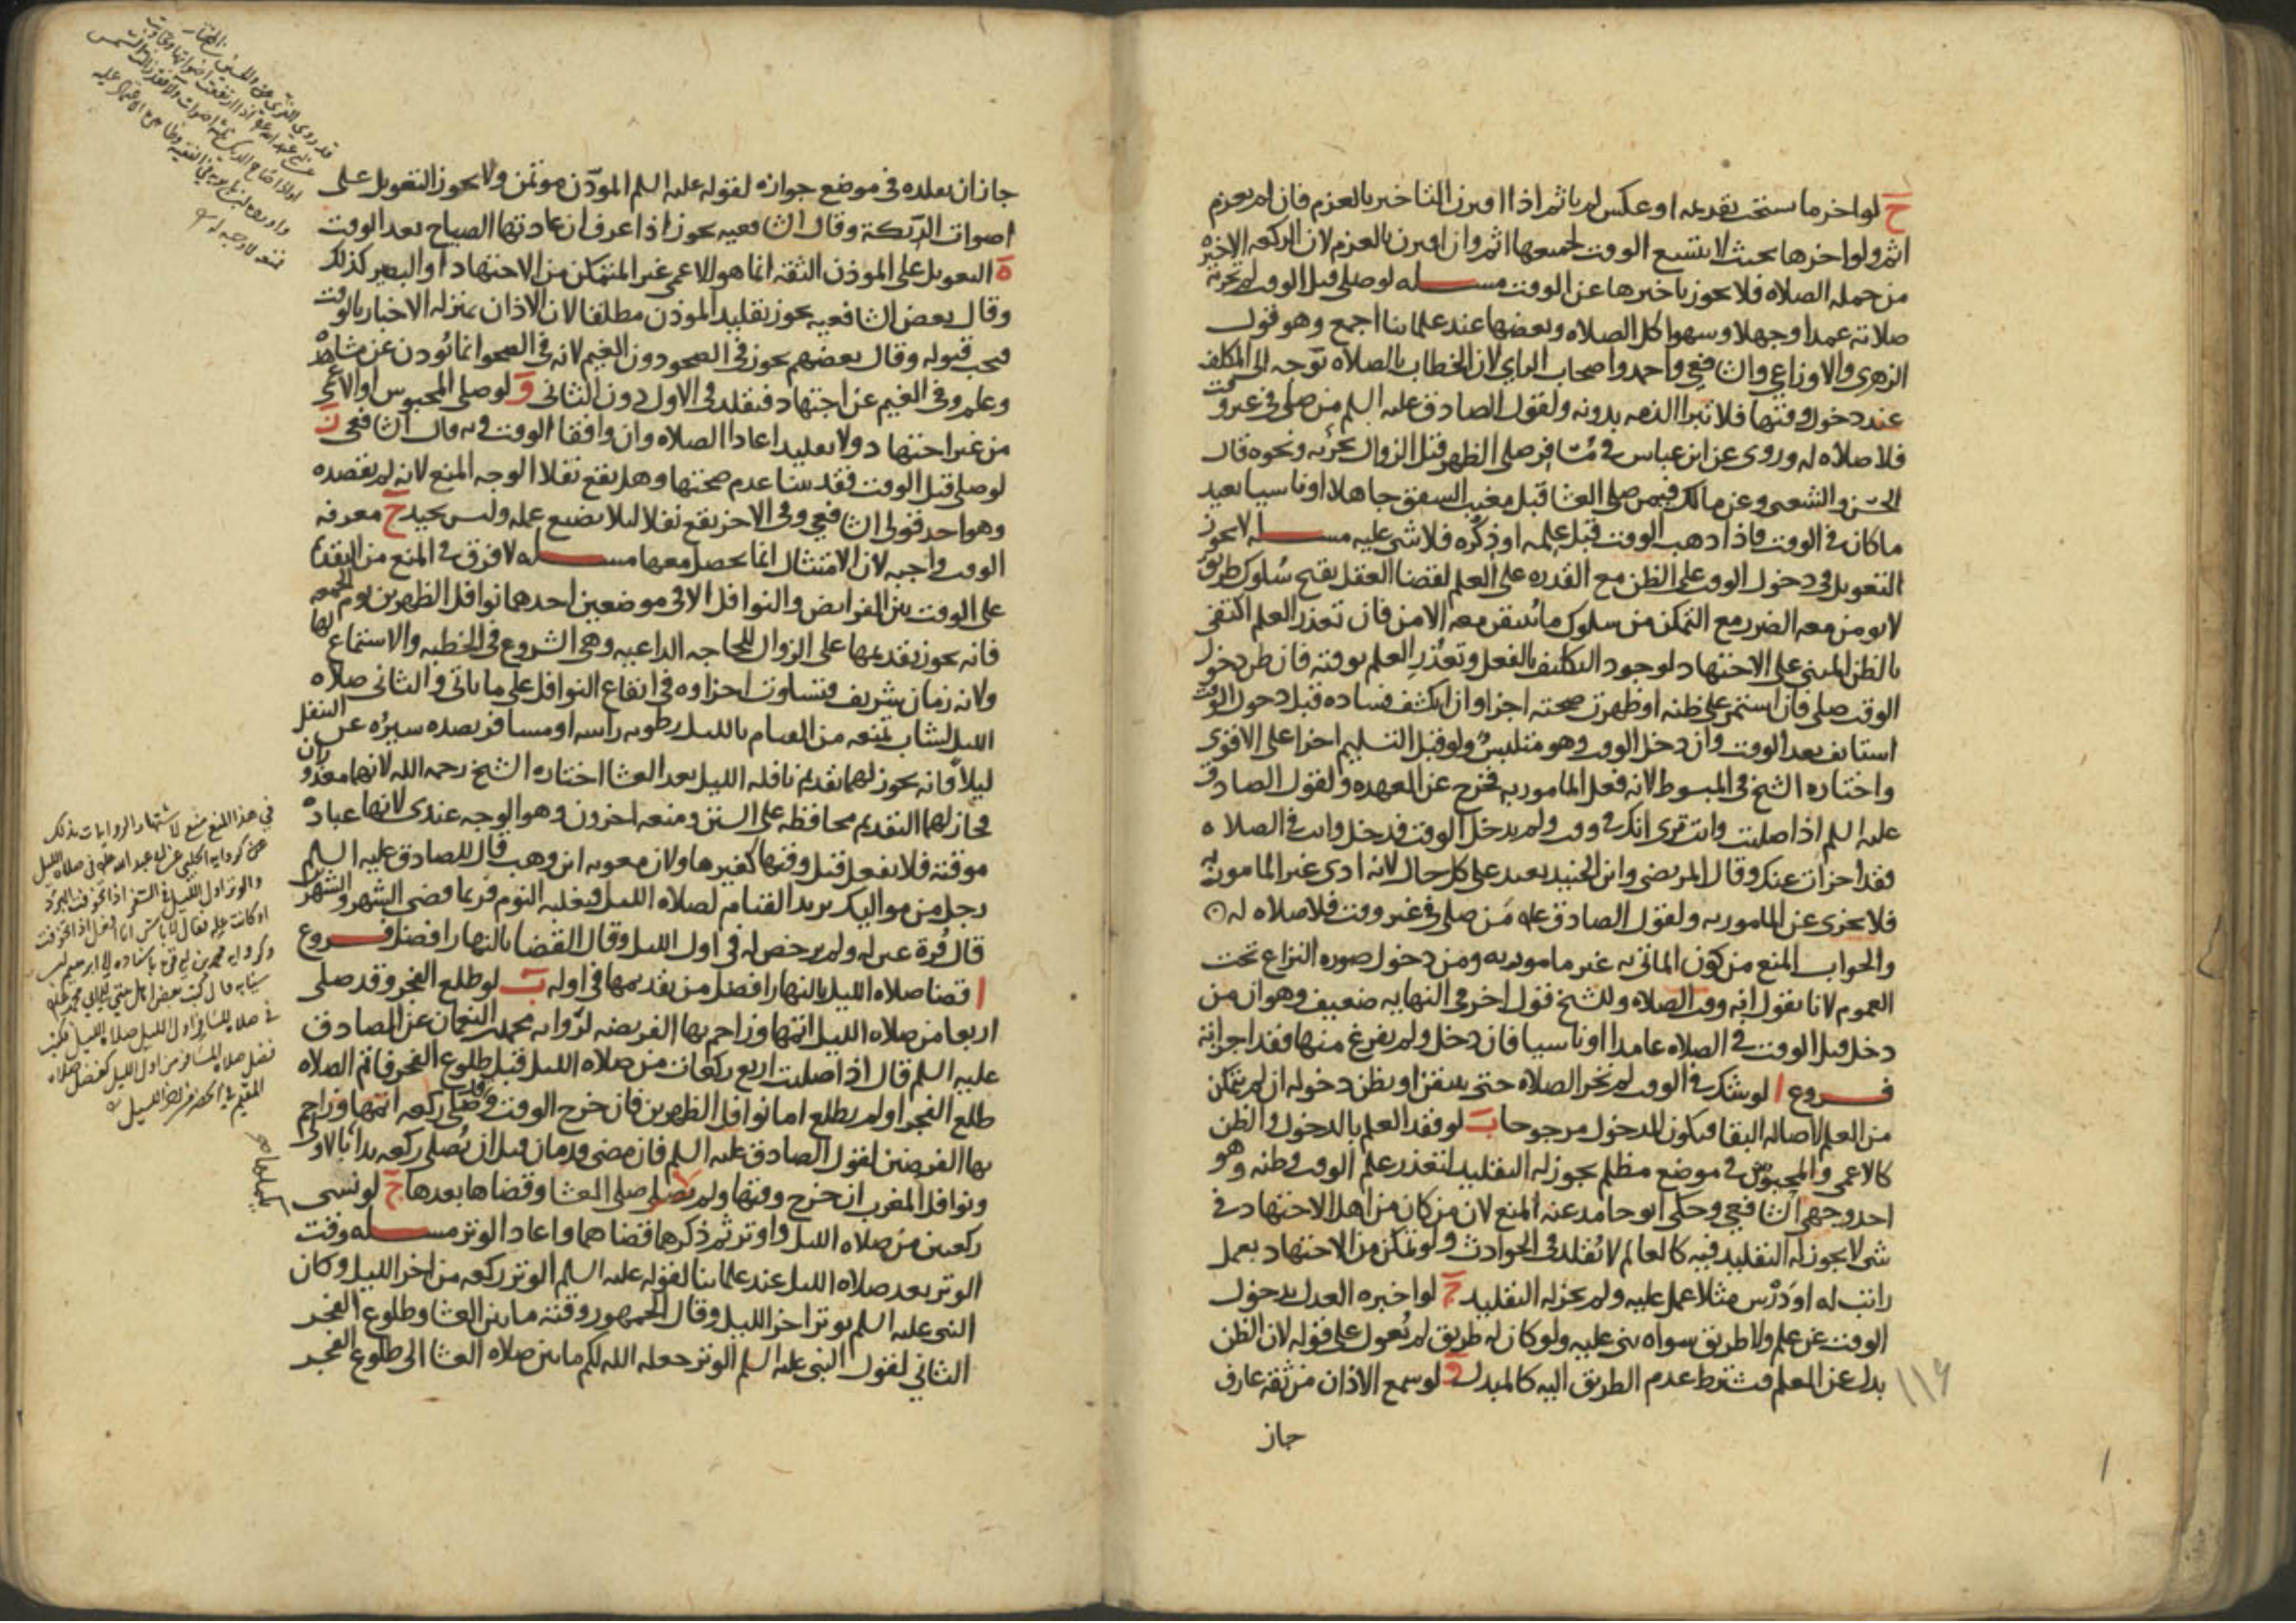 ح لو اخر ما يستحب تقديمه او عكس لم ياثم اذا اقترن التاخير بالعزم فان لم يعزم
اثم ولو اخرها بحيث لا يتسع الوقت لجميعها اثم وان اقترن بالعزم لان الركعه الاخيره
من جمله الصلاه فلا يجوز تاخيرها عن الوقت مسله لو صلى قبل الوقت لم تجزئه
صلاته عمدا او جهلا او سهوا كل الصلاه وبعضها عند علمائنا اجمع وهو قول
الزهرى والاوزاعي والشافعي واحمد واصحاب الراي لان الخطاب بالصلاه توجه الى المكلف
عند دخول وقتها فلا تبرا الذمه بدونه ولقول الصادق عليه السلم من صلى في غير وقت
فلا صلاه له وروى عن ابن عباس في مسافر صلى الظهر قبل الزوال يجزئه ونحوه قال
الحسن والشعبى وعن مالك فيمن صلى العشا قبل مغيب الشفق جاهلا او ناسيا يعيد
ما كان في الوقت فاذا ذهب الوقت قبل علمه او ذكره فلا شي عليه مسله لا يجوز
التعويل في دخول الوقت على الظن مع القدره على العلم لقضا العقل بقبح سلوك طريق
لا يومن معه الضرر مع التمكن من سلوك ما يتيقن معه الامن فان تعذر العلم اكتفى
بالظن المبنى على الاجتهاد لوجود التكليف بالفعل وتعذر العلم بوقته فان ظن دخول
الوقت صلى فان استمر على ظنه او ظهرت صحته اجزا وان انكشف فساده قبل دخول الوقت
استانف بعد الوقت وان دخل الوقت وهو متلبس ولو قبل التسليم اجزا على الاقوى
واختاره الشيخ في المبسوط لانه فعل المامور به فيخرج عن العهده ولقول الصادق
عليه السلم اذا صليت وانت ترى انك في وقت ولم يدخل الوقت فدخل وانت في الصلاه
فقد اجزات عنك وقال المرتضى وابن الجنيد يعيد على كل حال لانه ادى غير المامور به
فلا يجزى عن المامور به ولقول الصادق عليه من صلى في غير وقت فلا صلاه له
والجواب المنع من كون الماتى به غير مامور به ومن دخول صوره النزاع تحت
العموم لانا نقول انه وقت الصلاه وللشيخ قول اخر في النهايه ضعيف وهو ان من
دخل قبل الوقت في الصلاه عامدا او ناسيا فان دخل ولم يفرغ منها فقد اجزاته
فروع ا لو شك في الوقت لم تجز الصلاه حتى يتيقن او يظن دخوله ان لم يتمكن
من العلم لاصاله البقا فيكون الدخول مرجوحا ب لو فقد العلم بالدخول والظن
كالاعمى والمحبوس في موضع مظلم يجوز له التقليد لتعذر علم الوقت وظنه وهو
احد وجهي الشافعي وحكى ابو حامد عنه المنع لان من كان من اهل الاجتهاد في
شي لا يجوز له التقليد فيه كالعالم لا يقلد في الحوادث ولو تمكن من الاجتهاد بعمل
راتب له او درس مثلا عمل عليه ولم يجز له التقليد ج لو اخبره العدل بدخول
الوقت عن علم ولا طريق سواه بنى عليه ولو كان له طريق لم يعول على قوله لان الظن
بدل عن العلم فيشترط عدم الطريق اليه كالمبدل د لو سمع الاذان من ثقة عارف
جاز
١١٩
جاز ان يقلده في موضع جوازه لقوله عليه السلم الموذن موتمن ولا يجوز التعويل على
اصوات الديكة وقال الشافعيه يجوز اذا عرف ان عادتها الصياح بعد الوقت
ه التعويل على الموذن الثقه انما هو للاعمى غير المتمكن من الاجتهاد او البصير كذلك
وقال بعض الشافعيه يجوز تقليد الموذن مطلقا لان الاذان بمنزله الاخبار بالوقت
فيجب قبوله وقال بعضهم يجوز في الصحو دون الغيم لانه في الصحو انما يوذن عن مشاهده
وعلم وفي الغيم عن اجتهاد فيقلد في الاول دون الثاني و لو صلى المحبوس او الاعمى
من غير اجتهاد ولا تقليد اعادا الصلاه وان وافقا الوقت وبه قال الشافعي ز
لو صلى قبل الوقت فقد بينا عدم صحتها وهل يقع نفلا الوجه المنع لانه لم يقصده
وهو احد قولى الشافعي وفى الاخر يقع نفلا لئلا يضيع عمله وليس بجيد ح معرفه
الوقت واجبه لان الامتثال انما يحصل معها مسله لا فرق في المنع من التقديم
على الوقت بين الفرايض والنوافل الا في موضعين احدهما نوافل الظهرين يوم الجمعه
فانه يجوز تقديمها على الزوال للحاجه الداعيه وهى الشروع في الخطبه والاستماع لها
ولانه زمان شريف فتساوت اجزاوه في ايقاع النوافل على ما ياتى والثانى صلاه
الليل لشاب تمنعه من القيام بالليل رطوبه راسه او مسافر يصده سيره عن التنفل
ليلا فانه يجوز لهما تقديم نافله الليل بعد العشا اختاره الشيخ رحمه الله لانهما معذوران
فجاز لهما التقديم محافظه على السنن ومنعه اخرون وهو الوجه عندى لانها عباده
موقتة فلا تفعل قبل وقتها كغيرها ولان معويه ابن وهب قال للصادق عليه السلم
رجل من مواليك يريد القيام لصلاه الليل فيغلبه النوم فربما قضى الشهر والشهرين
قال قرة عين له ولم يرخص له في اول الليل وقال القضا بالنهار افضل فروع
ا قضا صلاه الليل بالنهار افضل من تقديمها في اوله ب لو طلع الفجر وقد صلى
اربعا من صلاه الليل اتمها وزاحم بها الفريضه لروايه محمد بن النعمان عن الصادق
عليه السلم قال اذا صليت اربع ركعات من صلاه الليل قبل طلوع الفجر فاتم الصلاه
طلع الفجر او لم يطلع اما نوافل الظهرين فان خرج الوقت وقد صلى ركعه اتمها وزاحم
بها الفرضين لقول الصادق عليه السلم فان مضى قدمان قبل ان يصلى ركعه بدا بالاولى
ونوافل المغرب ان خرج وقتها ولم يصلى صلى العشا وقضاها بعدها ج لو نسى
ركعتين من صلاه الليل واوتر ثم ذكرهما قضاهما واعاد الوتر مسله وقت
الوتر بعد صلاه الليل عند علمائنا لقوله عليه السلم الوتر ركعه من اخر الليل وكان
النبى عليه السلم يوتر اخر الليل وقال الجمهور وقته ما بين العشا وطلوع الفجر
الثاني لقول النبى عليه السلم الوتر جعله الله لكم ما بين صلاه العشا الى طلوع الفجر